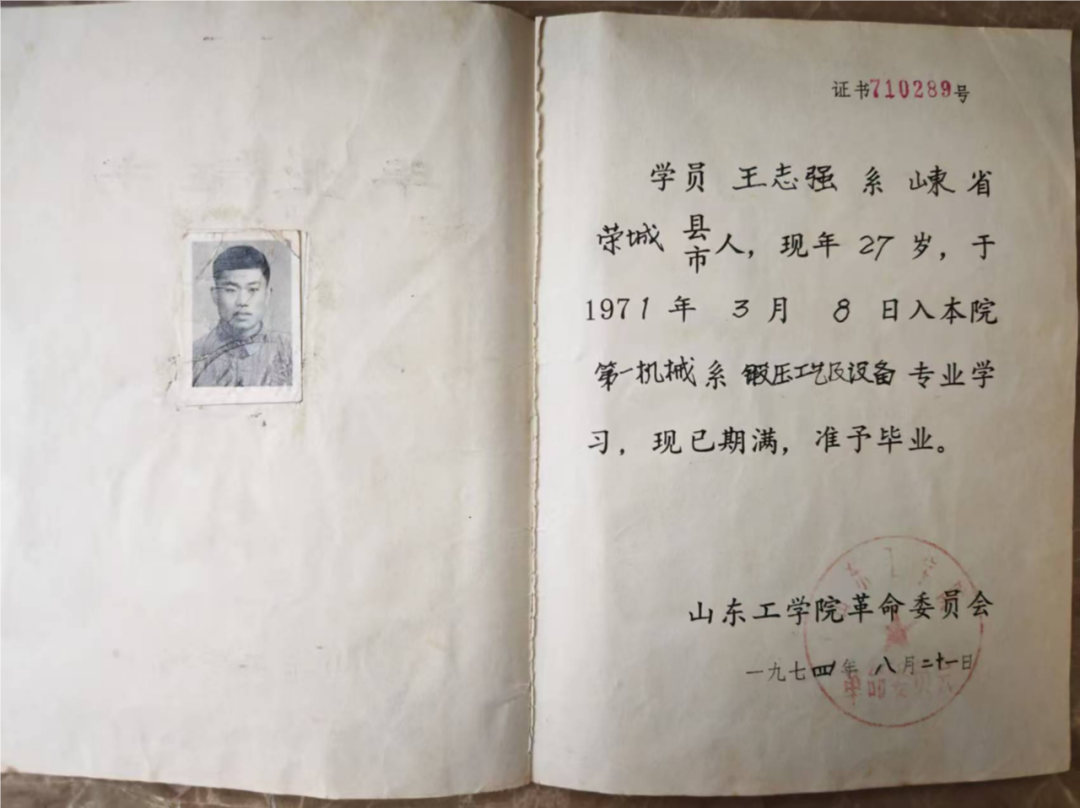 证书710289号
学员 王志强 系 山東 省
荣城 县市人，现年 27 岁，于
1971年 3月 8日入本院
第一机械系 锻压工艺及设备 专业学
习，现已期满，准予毕业。
山东工学院革命委员会
一九七四年 八月二十一日